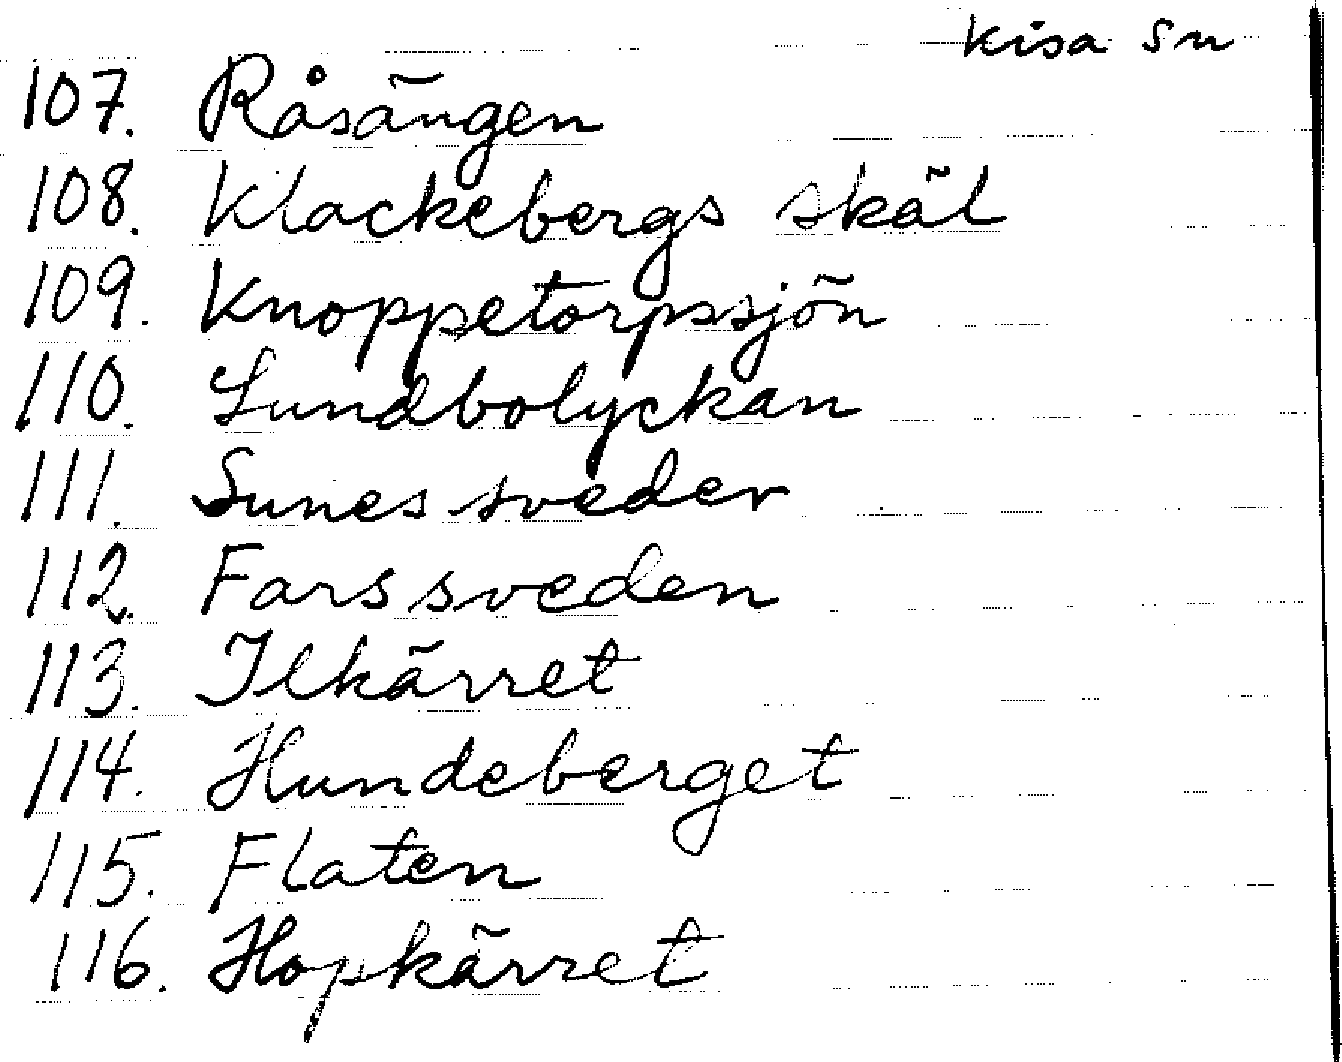 Kisa sn
107. Råsängen
108. Klackebergs skäl
109. Knoppetorpssjön
110. Lundbolyckan
111. Sunes sveder
112. Fars sveden
113. Ilkärret
114. Hundeberget
115. Flaten
116. Hopkärret